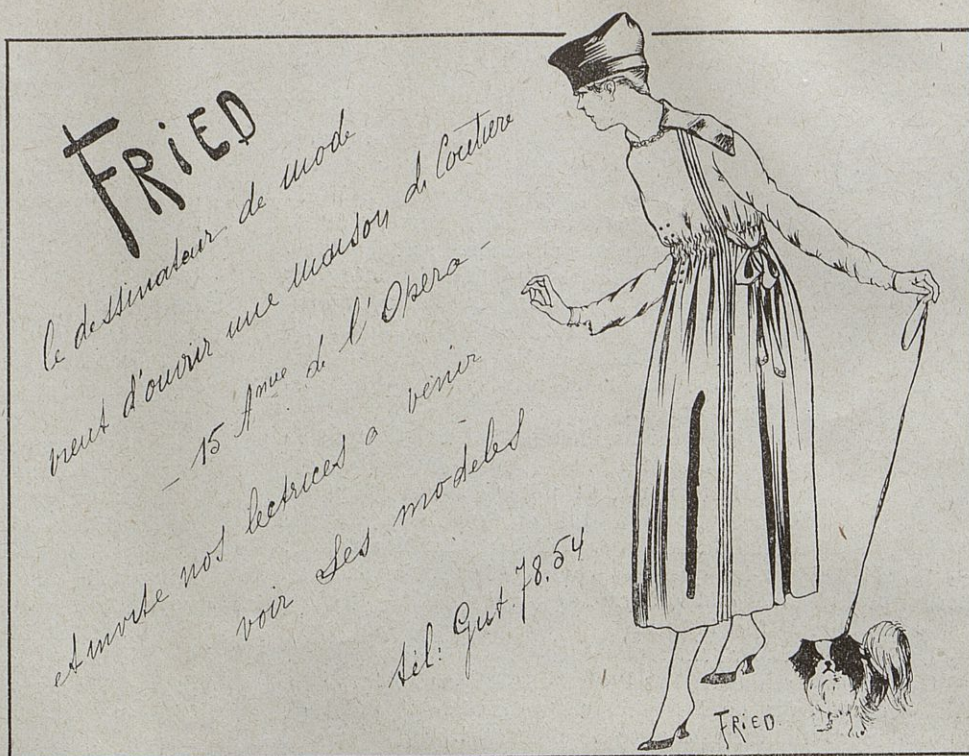 FRIED
le dessinateur de mode
vient d'ouvrir une maison de Couture
— 15 Anue de l'Opera —
et invite nos lectrices a venir
voir Ses modeles
tél: Gut. 78.54
FRIED